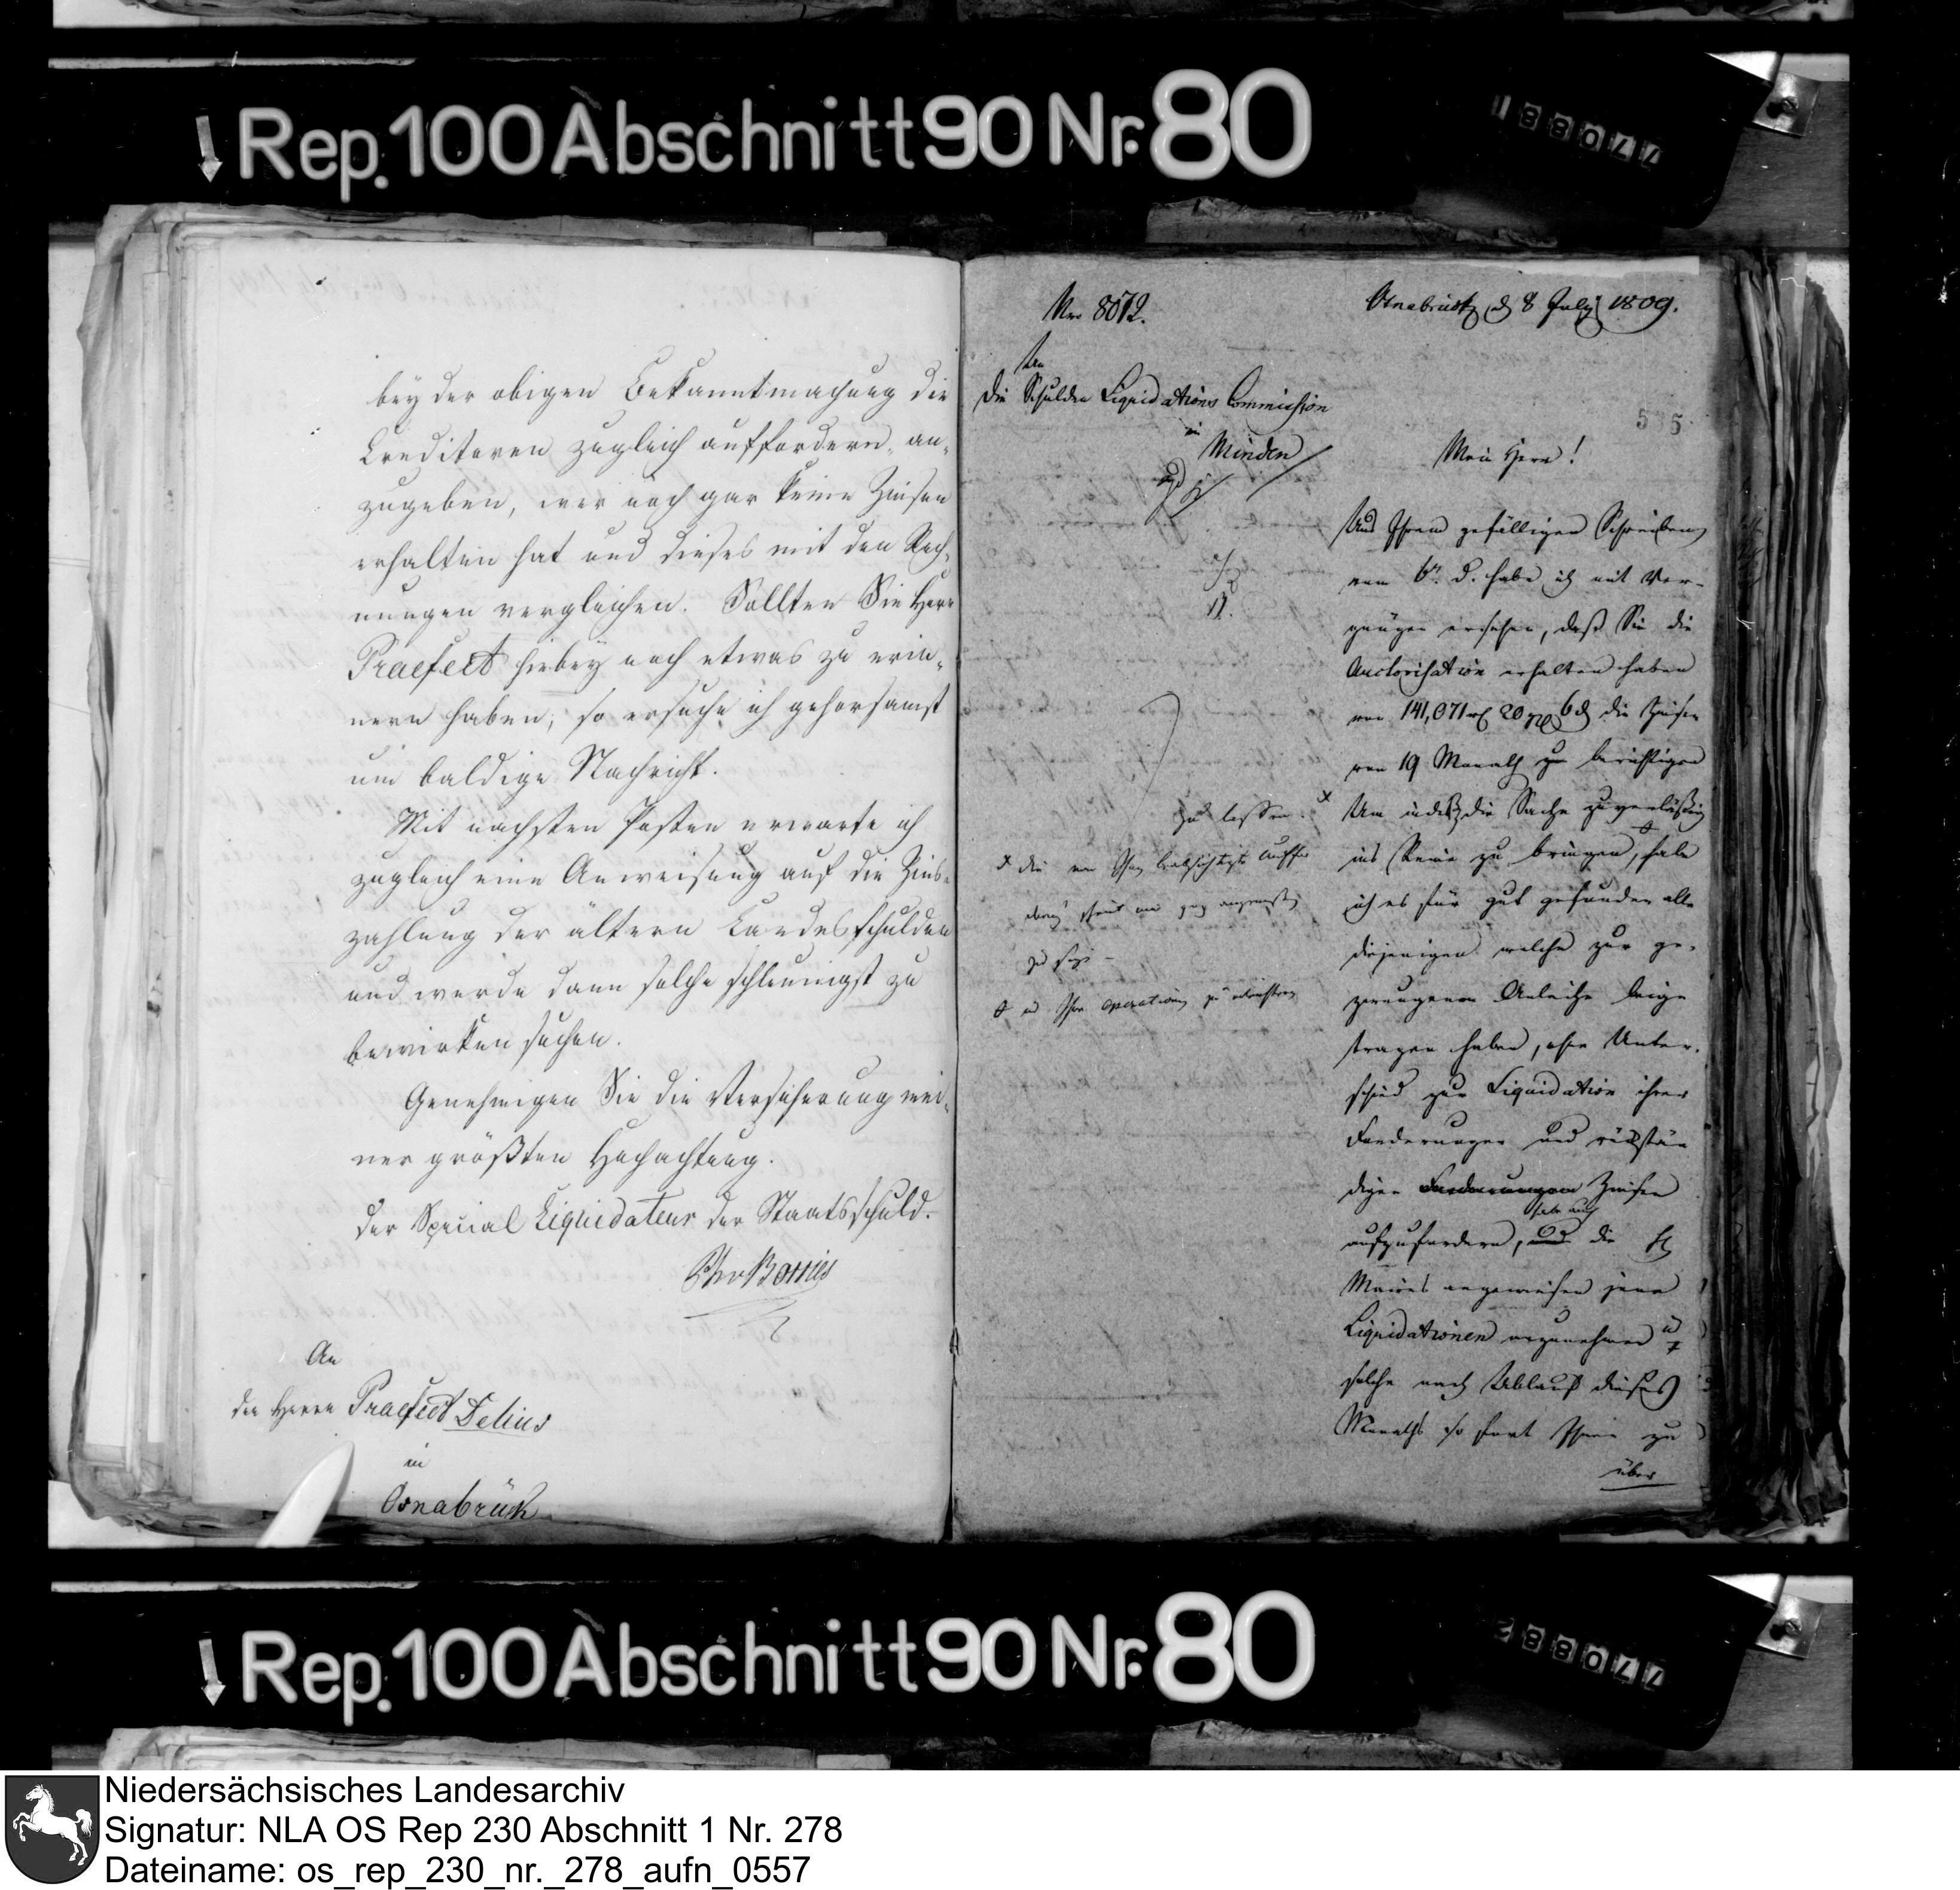 Rep. 100 Abschnitt 90 Nr. 80
bey der obigen Bekanntmachung die
Creditoren zugleich auffordern, an-
zugeben, wer noch gar keine Zinsen
erhalten hat und dieses mit den Rech-
nungen vergleichen. Sollten Sie Herr
Praefect hiebey noch etwas zu erin-
nern haben, so ersuche ich gehorsamst
um baldige Nachricht.
Mit nächsten Posten erwarte ich
zugleich eine Anweisung auf die Zins-
zahlung der ältern Landesschulden
und werde dann solche schleunigst zu
bewirken suchen.
Genehmigen Sie die Versicherung mei-
ner größten Hochachtung.
der Special Liquidateur der Staatsschuld.
vBorries
An
den Herrn Praefect Delius
in
Osnabrück
Nro 8072.
Osnabrück d 8 July 1809.
An
die Schulden Liquidations Commission
in
Minden
515
Mein Herr!
Aus Ihrem gefälligen Schreiben
vom 6n d. habe ich mit Ver-
gnügen ersehen, daß Sie die
Auctorisation erhalten haben
von 141,071 rt 20 6 d die Zinsen
von 19 Monath zu berichtigen
Um indeß die Sache zuverläßig
ins Reine zu bringen, habe
ich es für gut gefunden alle
diejenigen welche zur ge-
zwungenen Anleihe beige
tragen haben, ohne Unter-
schied zur Liquidation ihrer
Forderungen und rückstän
digen Forderungen Zinsen
aufzufordern, habe auch die H
Maires angewiesen jene
Liquidationen anzunehmen u
solche nach Ablauf dieses
Monaths so fort Ihnen zu
über
zu lassen.
x die von Ihnen beabsichtigte Auffor
derung scheint mir ganz angemessen
zu seyn -
und Ihre Operation zu erleichtern
Rep. 100 Abschnitt 90 Nr. 80
Niedersächsisches Landesarchiv
Signatur: NLA OS Rep 230 Abschnitt 1 Nr. 278
Dateiname: os_rep_230_nr._278_aufn_0557